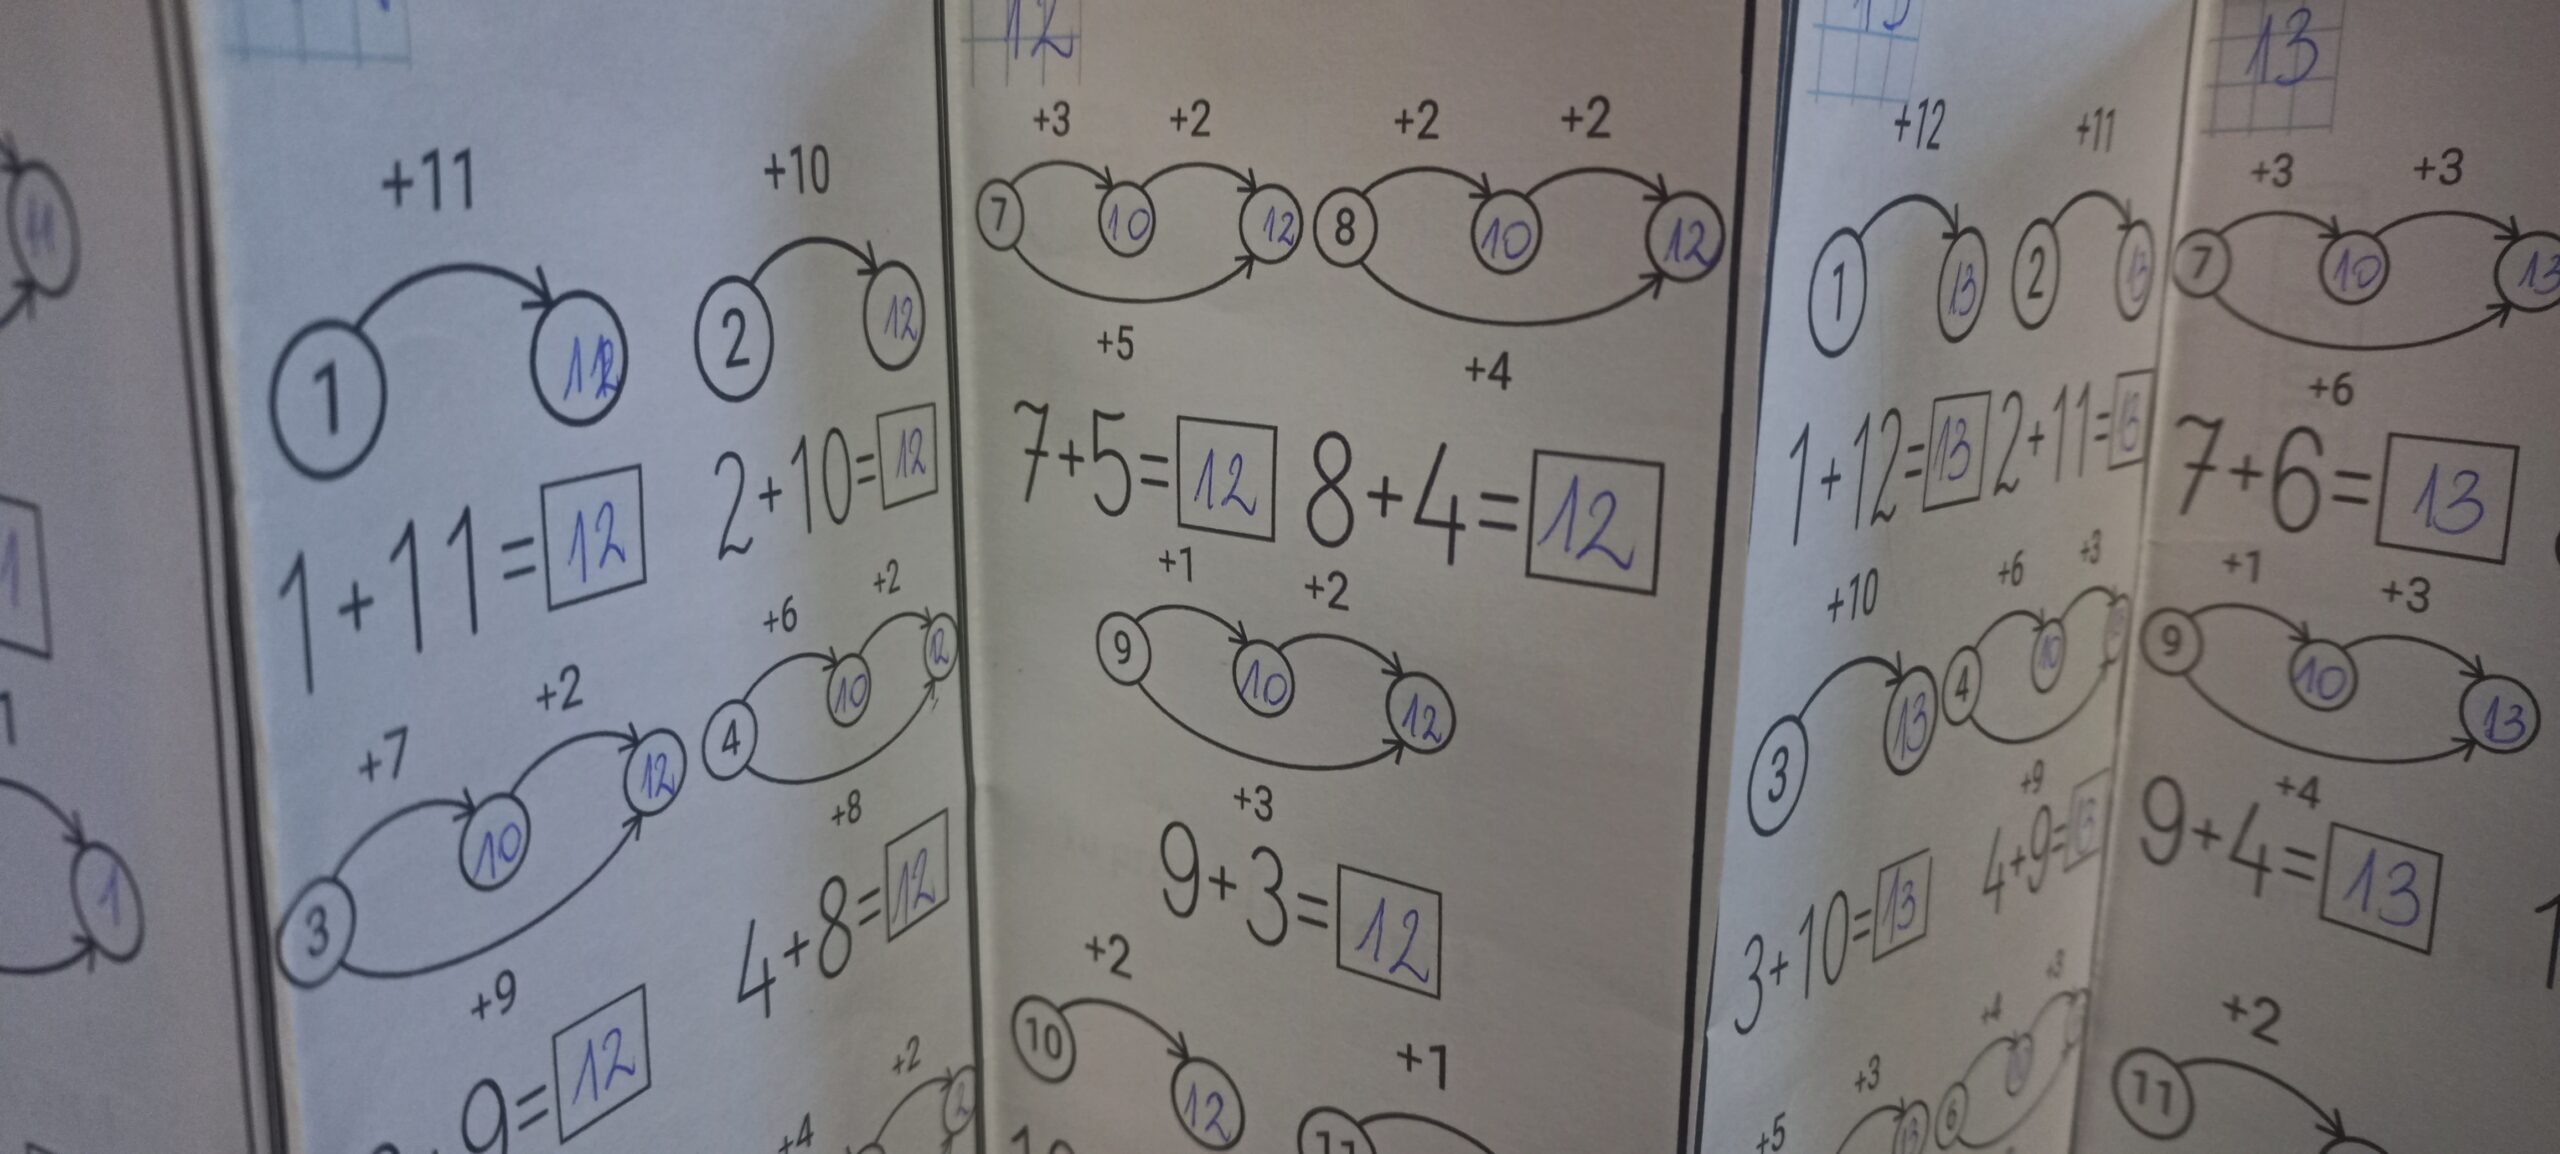 11
1
1
1
+11
+10
1 12
2 12
1+11=12
2+10=12
+7 +2
3 10 12
+9
9=12
+6 +2
4 10 12
+8
4+8=12
+2
+4
12
+3 +2
7 10 12
+5
7+5=12
+2 +2
8 10 12
+4
8+4=12
+1 +2
9 10 12
+3
9+3=12
+2
10 12
+1
11
+12
+11
1 13
2 13
1+12=13
2+11=13
+10
3 13
3+10=13
+6 +3
4 10
+9
4+9=13
+3
+5
13
+4 +3
6
13
+3 +3
7 10 13
+6
7+6=13
+1 +3
9 10 13
+4
9+4=13
+2
11